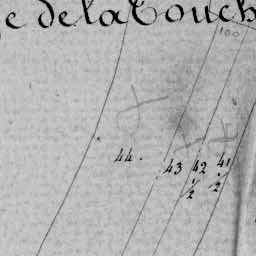 e de la Touch
100
44. 43 42 41
1/2 1/2